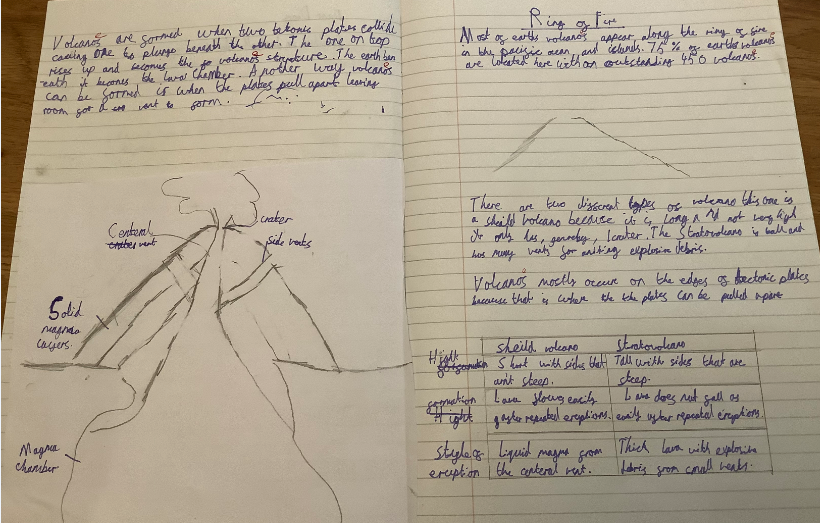 Volcanos are formed when two tektonic plates collide
causing one to plunge beneath the other. The one on top
rises up and becomes the volcanos structure. The earth ben
eath it becomes the lava chamber. Another way volcanos
can be formed is when the plates pull apart leaving
room for a vent to form.
crater
Centeral
vent
Side vents
Solid
magma
layers.
Magma
chamber
Ring of Fire
Most of earths volcanos appear along the ring of fire
in the pacific ocean, and islands. 75% of earths volcanos
are located here with an outstanding 450 volcanos.
There are two different types of volcano this one is
a sheild volcano because it is long and not very high
it only has, generaly, 1 crater. The Stratovolcano is tall and
has many vents for emiting explosive debris.
Volcanos mostly occur on the edges of tectonic plates
because that is where the the plates can be pulled apart
sheild volcano
Stratovolcano
Hight
Short with sides that
ain't steep.
Tall with sides that are
steep.
formation
Hight
Lava flows easily
after repeated eruptions.
Lava does not fall as
easily after repeated eruptions.
Style of
eruption
Liquid magma from
the centeral vent.
Thick lava with explosive
debris from small vents.